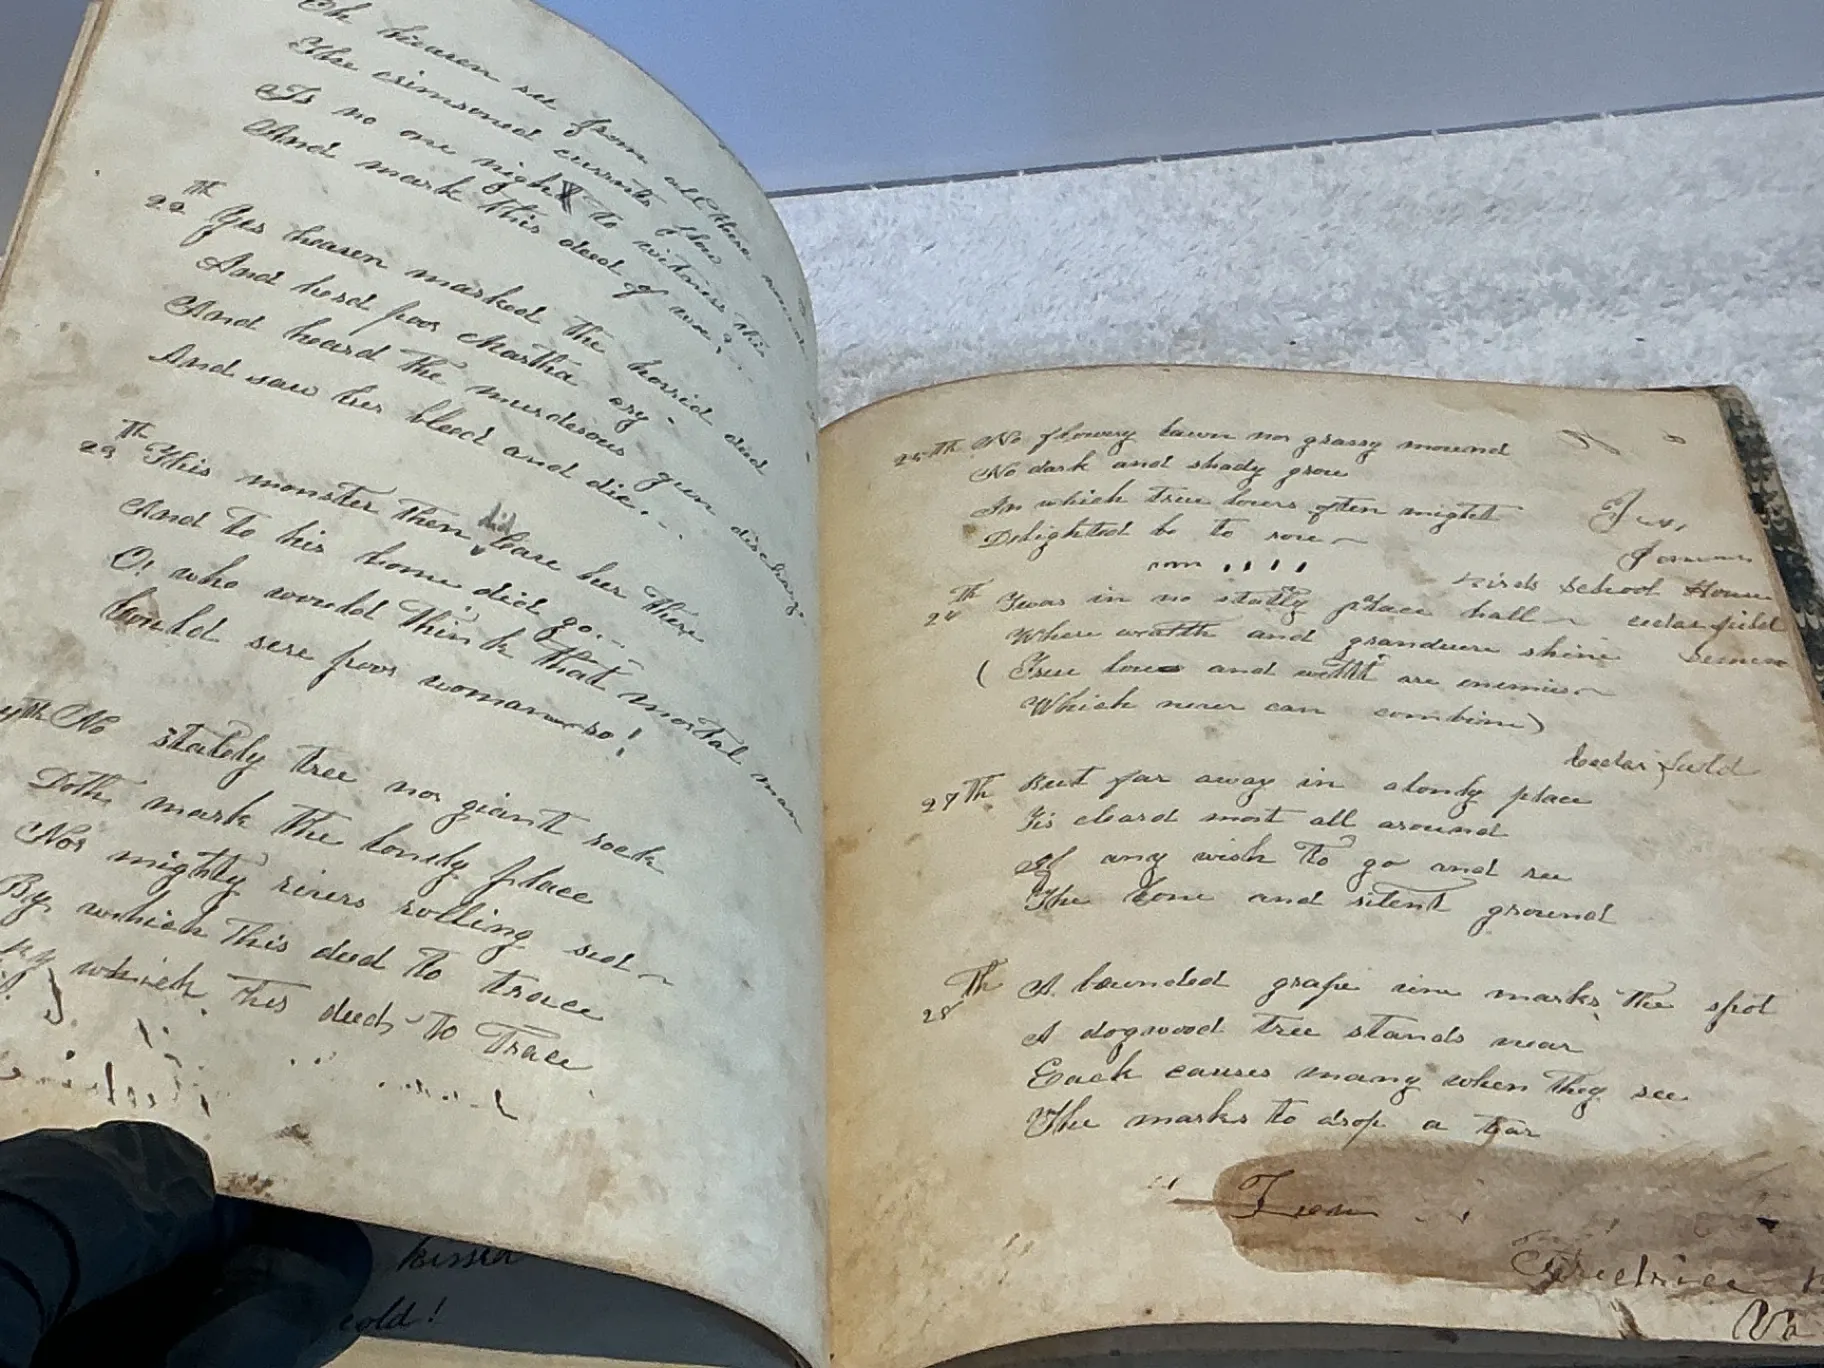 Oh heaven see from all there
The crimsoned currents flow
Is no one nigh to witness this
And mark this deed of woe?
22 Th Yes heaven marked the horrid deed
And herd poor Martha cry
And heard the murderous gun discharge
And saw her bleed and die.
23 Th This monster then did leave her there
And to his home did go.
O! who would think that mortal man
Could serve poor woman so!
4th No stately tree nor giant rock
Doth mark the lonely place
Nor mighty rivers rolling
By which this deed to trace
by which this deed to Trace
kissed
cold!
25th No flowery lawn nor grassy mound
No dark and shady grove
In which true lovers often might
Delighted be to rove
School House
26 Th Twas in no stately place hall
Cedarfield
Where wealth and grandeure shine
(True love and welth are enemies
Which never can combine)
Cedar field
27 Th But far away in alonely place
Tis cleard most all around
If any wish to go and see
The lone and silent ground
28 Th A bounded grape vine marks the spot
A dogwood tree stands near
Each causes many when they see
The marks to drop a tear
Va